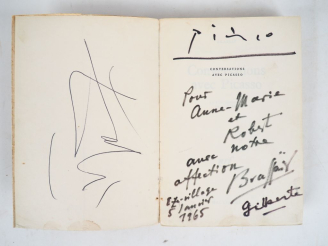 Picasso
CONVERSATIONS
AVEC PICASSO
Pour
Anne-Marie
et
Robert
avec notre
affection
Brassaï
Eze-village
5 Janvier
1965
Gilberte